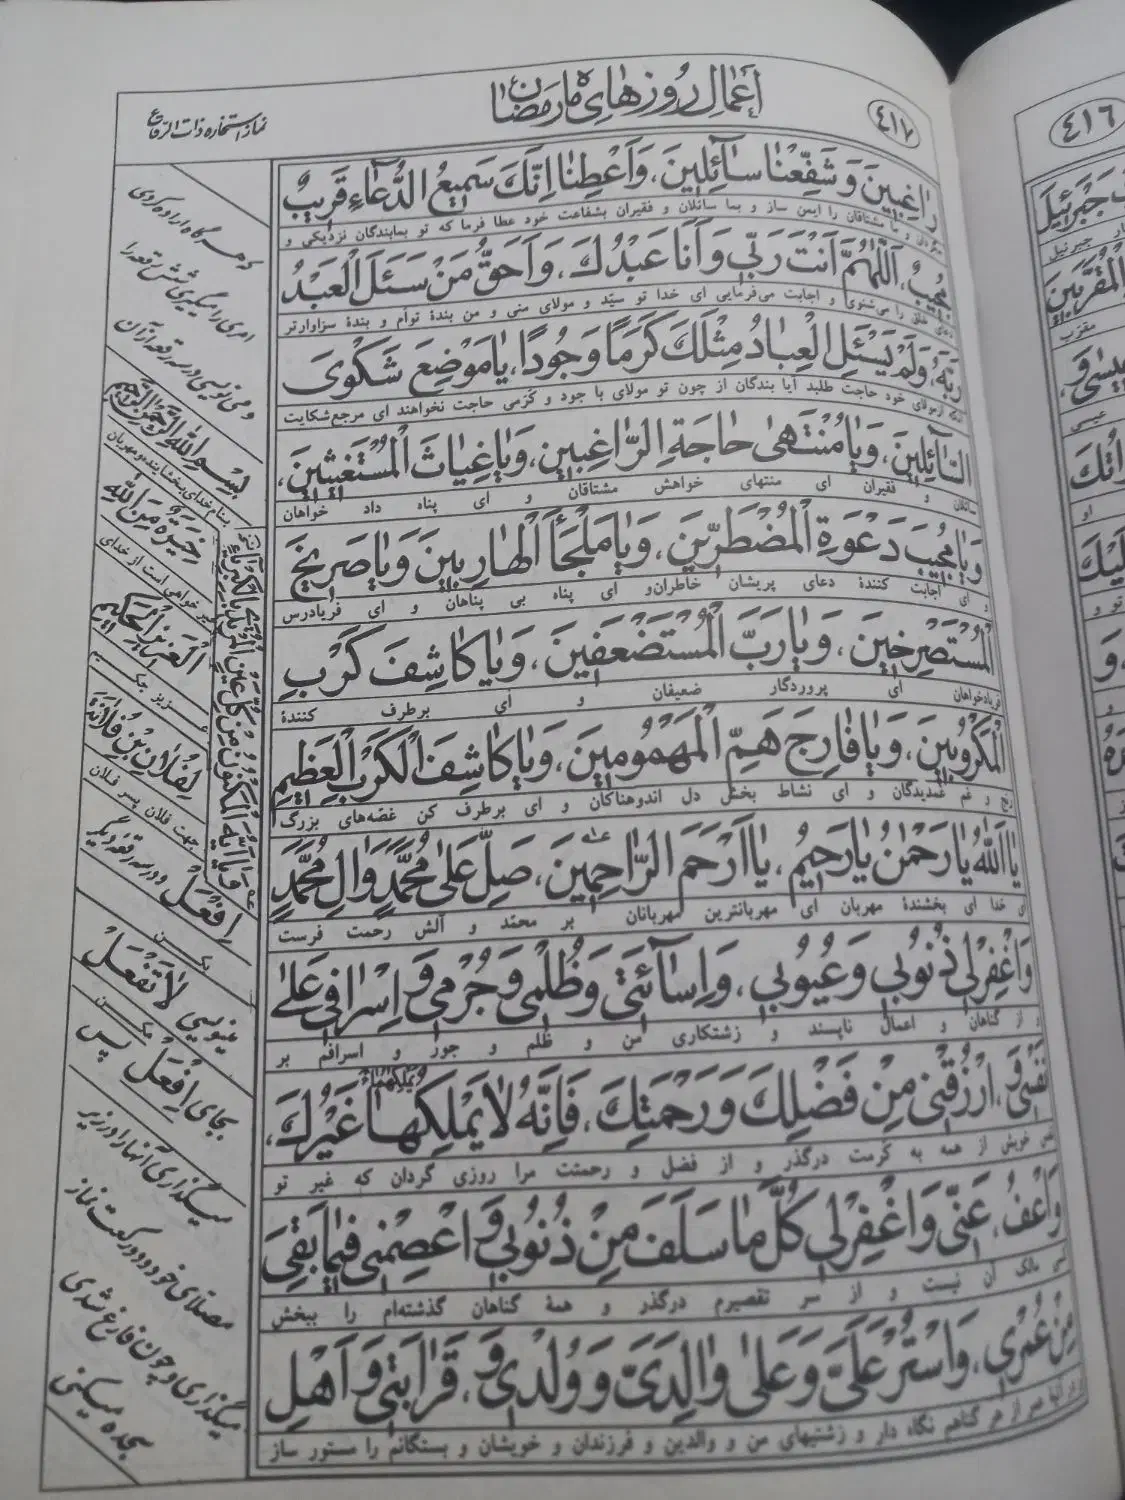 ٤١٧
أعمال روزهای ماه رمضان
نماز استخاره ذات الرقاع
راغِبینَ وَ شَفِّعْنا سآئِلینَ، وَاَعْطِنا اِنَّکَ سَمیعُ الدُّعاءِ قَریبٌ
و ما مشتاقان را ایمن ساز و بما سائلان و فقیران بشفاعت خود عطا فرما که تو بمابندگان نزدیکی و
مُجیبٌ، اَللّهُمَّ اَنْتَ رَبّی وَاَنَا عَبْدُکَ، وَاَحَقُّ مَنْ سَئَلَ الْعَبْدُ
دعای خلق را می‌شنوی و اجابت می‌فرمایی ای خدا تو سیّد و مولای منی و من بندهٔ توأم و بندهٔ سزاوارتر
رَبَّهُ، وَلَمْ یَسْئَلِ الْعِبادُ مِثْلَکَ کَرَمًا وَجُودًا، یا مَوْضِعَ شَکْوَی
ازمولای خود حاجت طلبد آیا بندگان از چون تو مولای با جود و کَرَمی حاجت نخواهند ای مرجع‌شکایت
السّآئِلینَ، وَیا مُنْتَهی حاجَةِ الرّاغِبینَ، وَیا غِیاثَ الْمُسْتَغیثینَ،
سائلان و فقیران ای منتهای خواهش مشتاقان و ای پناه داد خواهان
وَیا مُجیبَ دَعْوَةِ الْمُضْطَرّینَ، وَیا مَلْجَأَ الْهارِبینَ وَیا صَریخَ
و ای اجابت کنندهٔ دعای پریشان خاطران‌و ای پناه بی پناهان و ای فریادرس
الْمُسْتَصْرِخینَ، وَیا رَبَّ الْمُسْتَضْعَفینَ، وَیا کاشِفَ کَرْبِ
فریادخواهان ای پروردگار ضعیفان و ای برطرف کنندهٔ
الْمَکْرُوبینَ، وَیا فارِجَ هَمِّ الْمَهْمُومینَ، وَیا کاشِفَ الْکَرْبِ الْعَظیمِ
رنج و غم غمدیدگان و ای نشاط بخش دل اندوهناکان و ای برطرف کن غصّه‌های بزرگ
یا اَللّهُ یا رَحْمنُ یا رَحیمُ، یا اَرْحَمَ الرّاحِمینَ، صَلِّ عَلی مُحَمَّدٍ وَالِ مُحَمَّدٍ
ای خدا ای بخشندهٔ مهربان ای مهربانترین مهربانان بر محمّد و آلش رحمت فرست
وَاغْفِرْلی ذُنُوبی وَعُیُوبی، وَاِسآئَتی وَظُلْمی وَجُرْمی وَاِسْرافی عَلی
و از گناهان و اعمال ناپسند و زشتکاری من و ظلم و جور و اسرافم بر
نَفْسی، وَارْزُقْنی مِنْ فَضْلِکَ وَرَحْمَتِکَ، فَاِنَّهُ لا یَمْلِکُها غَیْرُکَ،
نفس خویش از همه به کَرمت درگذر و از فضل و رحمتت مرا روزی گردان که غیر تو
وَاعْفُ عَنّی وَاغْفِرْلی کُلَّ ما سَلَفَ مِنْ ذُنُوبی وَاعْصِمْنی فیما بَقِیَ
کسی مالک آن نیست و از سر تقصیرم درگذر و همهٔ گناهان گذشته‌ام را ببخش
مِنْ عُمْری، وَاسْتُرْ عَلَیَّ وَعَلی والِدَیَّ وَوُلْدی، وَقَرابَتی وَاَهْلِ
از هر گناهم نگاه دار و زشتیهای من و والدین و فرزندان و خویشان و بستگانم را مستور ساز
که هرگاه اراده کردی
امری را میگیری شش رقعه را
و می نویسی در سه رقعه از آن
بِسْمِ اللهِ الرَّحْمنِ الرَّحیمِ
بنام خدای بخشاینده و مهربان
خِیَرَةٌ مِنَ اللهِ
خیر خواهی است از خدای
الْعَزیزِ الْحَکیمِ
عزیز حکیم
لِفُلانِ بْنِ فُلانَةَ
جهت فلان پسر فلان
اِفْعَلْ و در سه رقعه دیگر
بکن
مینویسی لا تَفْعَلْ
مکن
بجای اِفْعَلْ پس
میگذاری آنها را در زیر
مصلّای خود و دو رکعت نماز
میگذاری و چون فارغ شدی
سجده میکنی
٤١٦
جَبْرَئیلَ
جبرئیل
الْمُقَرَّبینَ
مقرّب
عیسی
او
تو و